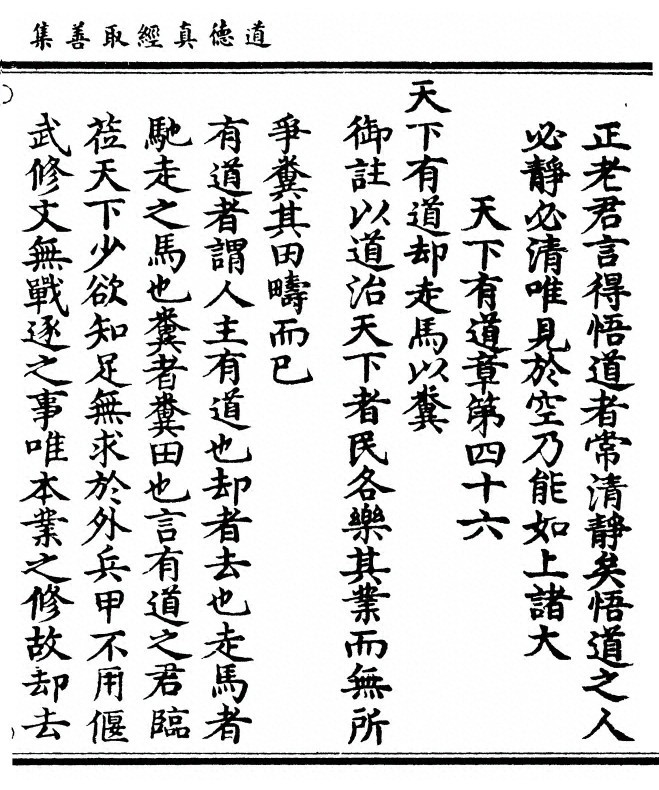 道德真經取善集
正老君言得悟道者常清靜矣悟道之人
必靜必清唯見於空乃能如上諸大
天下有道章第四十六
天下有道却走馬以糞
御註以道治天下者民各樂其業而無所
爭糞其田疇而已
有道者謂人主有道也却者去也走馬者
馳走之馬也糞者糞田也言有道之君臨
莅天下少欲知足無求於外兵甲不用偃
武修文無戰逐之事唯本業之修故却去